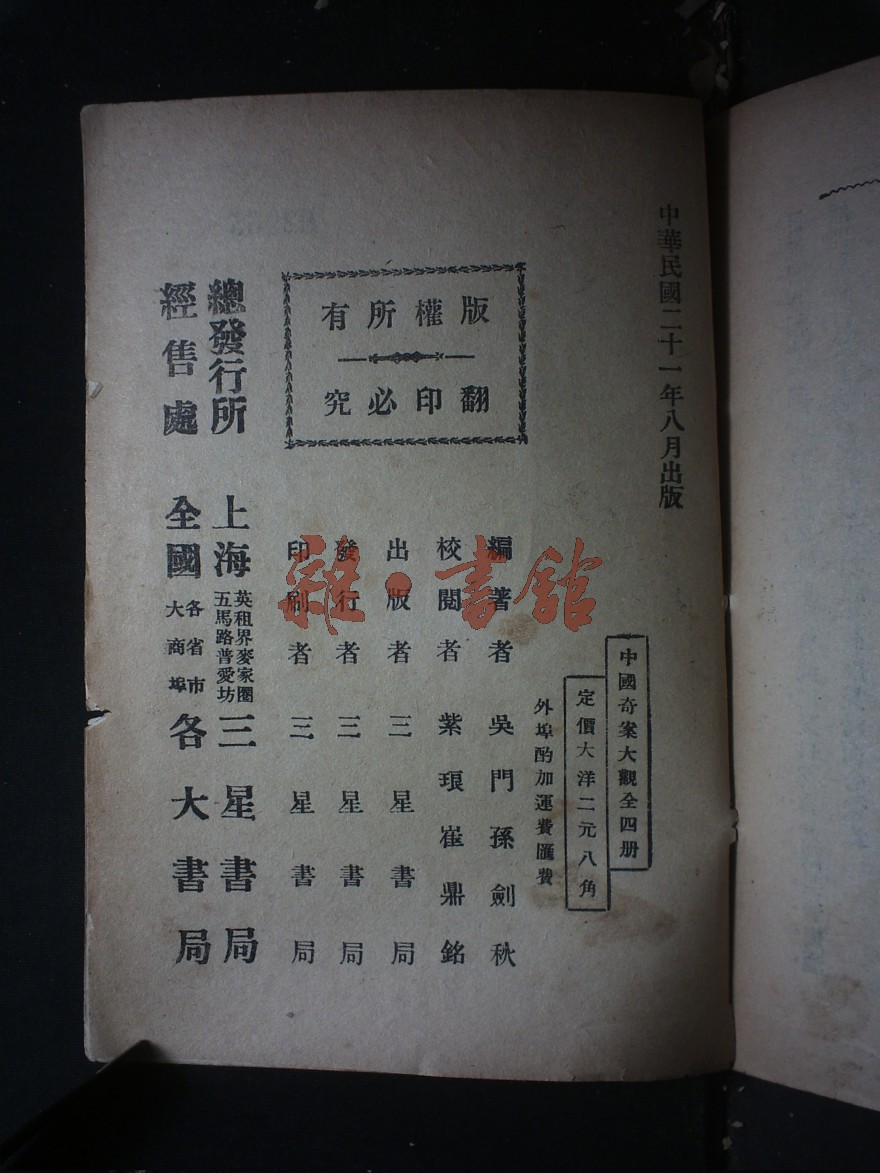 中華民國二十一年八月出版
中國奇案大觀全四册
定價大洋二元八角
外埠酌加運費匯費
編著者 吳門孫劍秋
校閱者 紫琅崔鼎銘
出版者 三星書局
發行者 三星書局
印刷者 三星書局
版權所有
翻印必究
總發行所 上海 英租界麥家圈五馬路普愛坊 三星書局
經售處 全國 各省市大商埠 各大書局
雜·書館